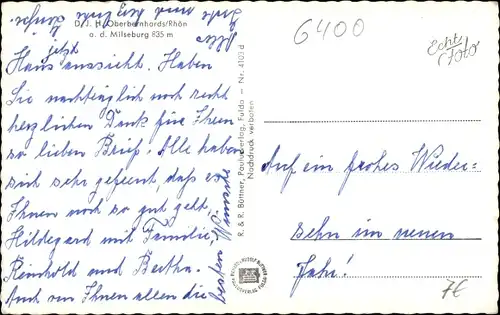 D. J. H. Oberbernhards/Rhön
a. d. Milseburg 835 m
jetzt
Haus aussicht. Haben
Sie nachträglich noch recht
herzlichen Dank für Ihren
so lieben Brief. Alle haben
sich sehr gefreut, daß es
Ihnen noch so gut geht,
Hildegard mit Familie,
Reinhold und Bertha.
Auch von Ihnen allen die
besten Wünsche
Alles
R. & R. Büttner, Paulusverlag, Fulda — Nr. 4103 d
Nachdruck verboten
6400
Echt
Foto
Auf ein frohes Wieder-
sehn im neuen
Jahr!
7€